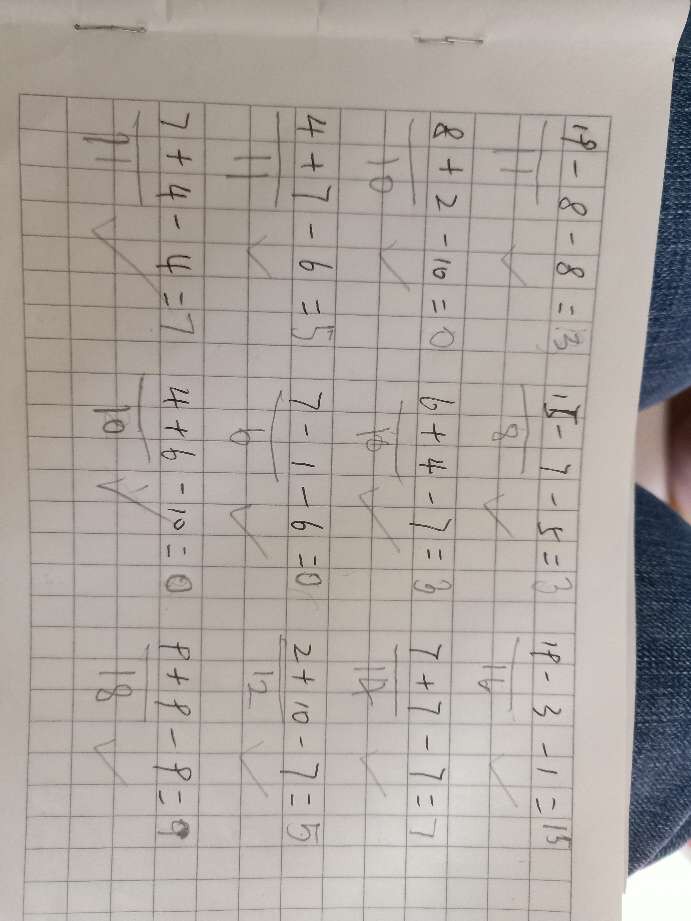 19 - 8 - 8 = 3 15 - 7 - 5 = 3 19 - 3 - 1 = 15
11 8 16
8 + 2 - 10 = 0 6 + 4 - 7 = 3 7 + 7 - 7 = 7
10 10 14
4 + 7 - 6 = 5 7 - 1 - 6 = 0 2 + 10 - 7 = 5
11 6 12
7 + 4 - 4 = 7 4 + 6 - 10 = 0 9 + 9 - 9 = 9
11 10 18